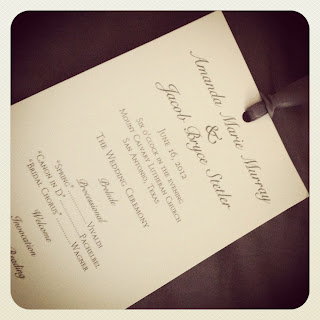 Amanda Marie Murray
&
Jacob Bryce Stetler
June 16, 2012
Six o'clock in the evening
Mount Calvary Lutheran Church
San Antonio, Texas
The Wedding Ceremony
Prelude
"Spring" Vivaldi
Processional
"Canon in D" Pachelbel
"Bridal Chorus" Wagner
Welcome
Invocation
Reading